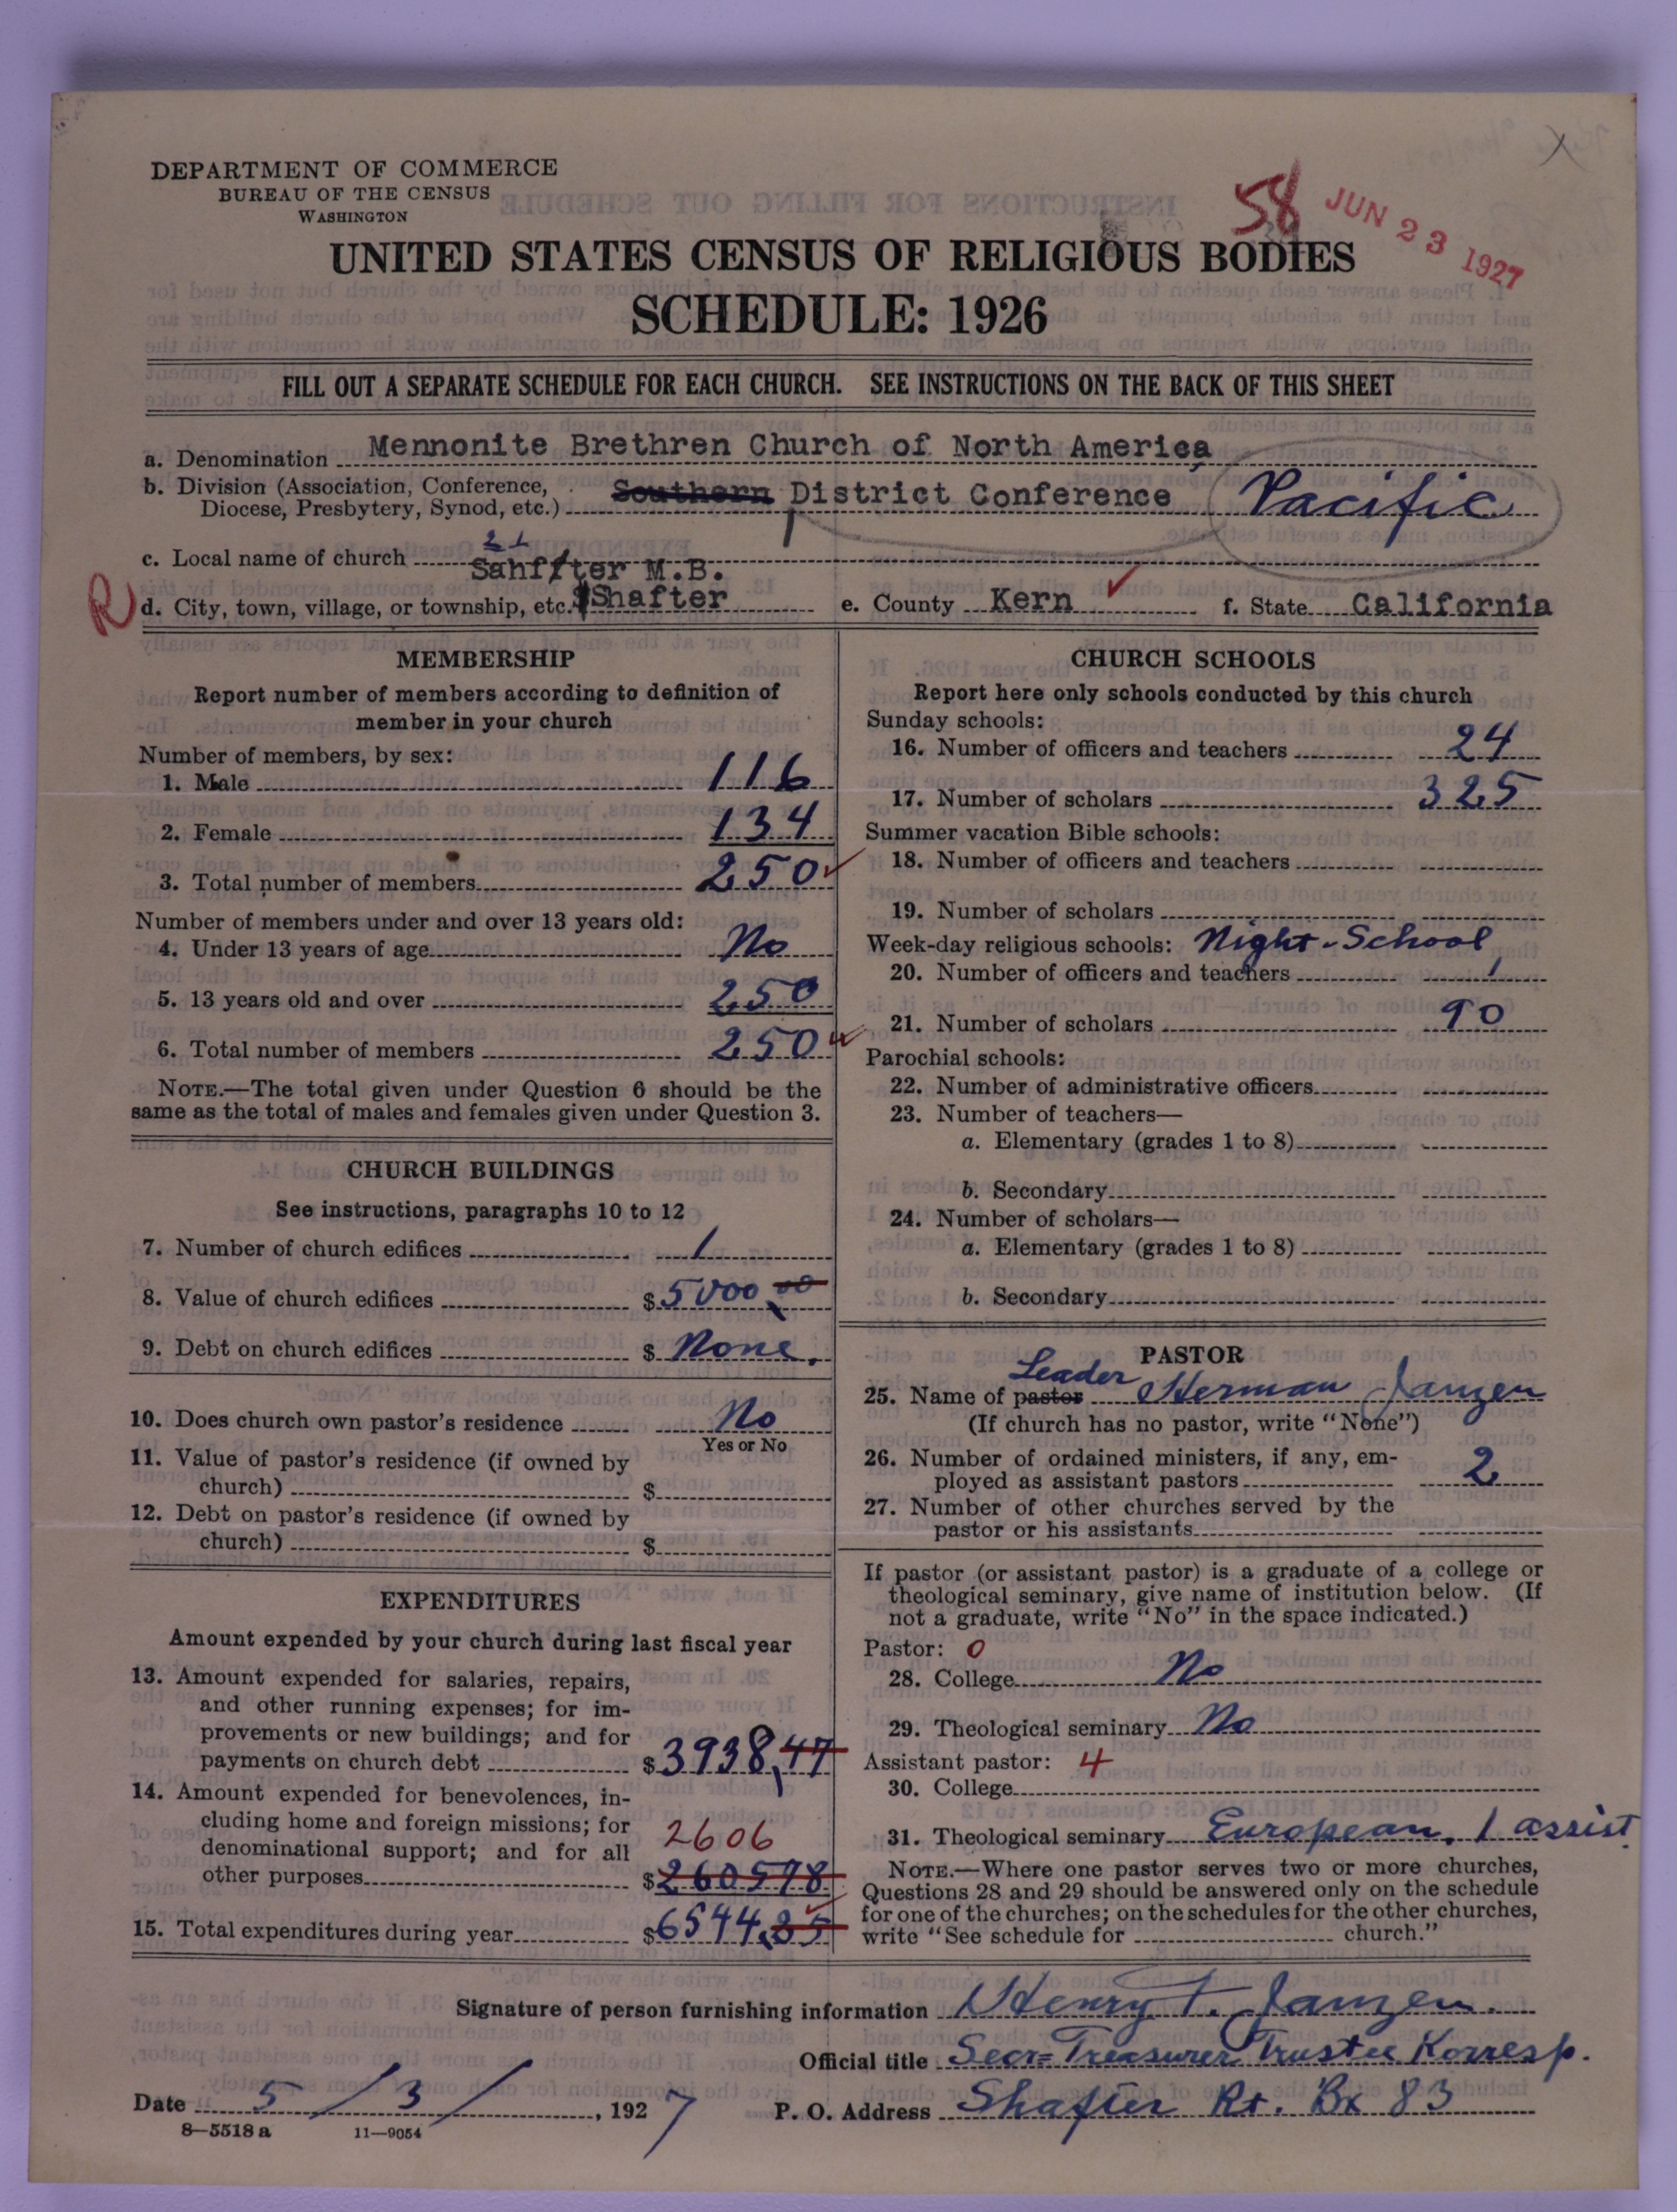 DEPARTMENT OF COMMERCE
BUREAU OF THE CENSUS
WASHINGTON
58
JUN 23 1927
UNITED STATES CENSUS OF RELIGIOUS BODIES
SCHEDULE: 1926
FILL OUT A SEPARATE SCHEDULE FOR EACH CHURCH. SEE INSTRUCTIONS ON THE BACK OF THIS SHEET
a. Denomination Mennonite Brethren Church of North America
b. Division (Association, Conference, Diocese, Presbytery, Synod, etc.) Southern District Conference Pacific
c. Local name of church Sahffter M.B.
R d. City, town, village, or township, etc. Shafter e. County Kern f. State California
MEMBERSHIP
Report number of members according to definition of
member in your church
Number of members, by sex:
1. Male 116
2. Female 134
3. Total number of members 250
Number of members under and over 13 years old:
4. Under 13 years of age No
5. 13 years old and over 250
6. Total number of members 250
NOTE.—The total given under Question 6 should be the
same as the total of males and females given under Question 3.
CHURCH BUILDINGS
See instructions, paragraphs 10 to 12
7. Number of church edifices 1
8. Value of church edifices $5000 00
9. Debt on church edifices $ None.
10. Does church own pastor's residence No
Yes or No
11. Value of pastor's residence (if owned by
church) $
12. Debt on pastor's residence (if owned by
church) $
EXPENDITURES
Amount expended by your church during last fiscal year
13. Amount expended for salaries, repairs,
and other running expenses; for im-
provements or new buildings; and for
payments on church debt $3938,47
14. Amount expended for benevolences, in-
cluding home and foreign missions; for
denominational support; and for all 2606
other purposes $260578
15. Total expenditures during year $6544.25
CHURCH SCHOOLS
Report here only schools conducted by this church
Sunday schools:
16. Number of officers and teachers 24
17. Number of scholars 325
Summer vacation Bible schools:
18. Number of officers and teachers
19. Number of scholars
Week-day religious schools: Night-School
20. Number of officers and teachers 1
21. Number of scholars 90
Parochial schools:
22. Number of administrative officers
23. Number of teachers—
a. Elementary (grades 1 to 8)
b. Secondary
24. Number of scholars—
a. Elementary (grades 1 to 8)
b. Secondary
PASTOR
Leader
25. Name of pastor Herman Janzen
(If church has no pastor, write "None")
26. Number of ordained ministers, if any, em-
ployed as assistant pastors 2
27. Number of other churches served by the
pastor or his assistants
If pastor (or assistant pastor) is a graduate of a college or
theological seminary, give name of institution below. (If
not a graduate, write "No" in the space indicated.)
Pastor: 0
28. College No
29. Theological seminary No
Assistant pastor: 4
30. College
31. Theological seminary European. 1 assist
NOTE.—Where one pastor serves two or more churches,
Questions 28 and 29 should be answered only on the schedule
for one of the churches; on the schedules for the other churches,
write "See schedule for church."
Signature of person furnishing information Henry T. Janzen.
Official title Secr= Treasurer Trustee Korresp.
Date 5/3/, 1927
P. O. Address Shafter Rt. Bx 83
8—5518 a 11—9054